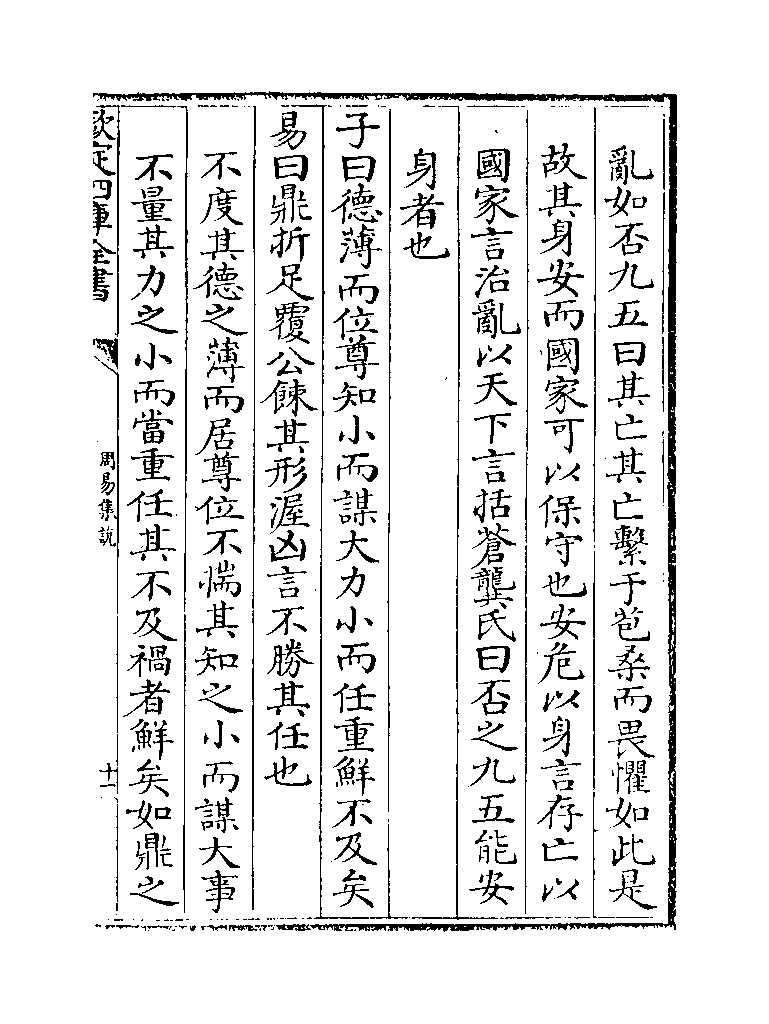 亂如否九五曰其亡其亡繫于苞桑而畏懼如此是
故其身安而國家可以保守也安危以身言存亡以
國家言治亂以天下言括蒼龔氏曰否之九五能安
身者也
子曰德薄而位尊知小而謀大力小而任重鮮不及矣
易曰鼎折足覆公餗其形渥凶言不勝其任也
不度其德之薄而居尊位不惴其知之小而謀大事
不量其力之小而當重任其不及禍者鮮矣如鼎之
欽定四庫全書
周易集說
十一